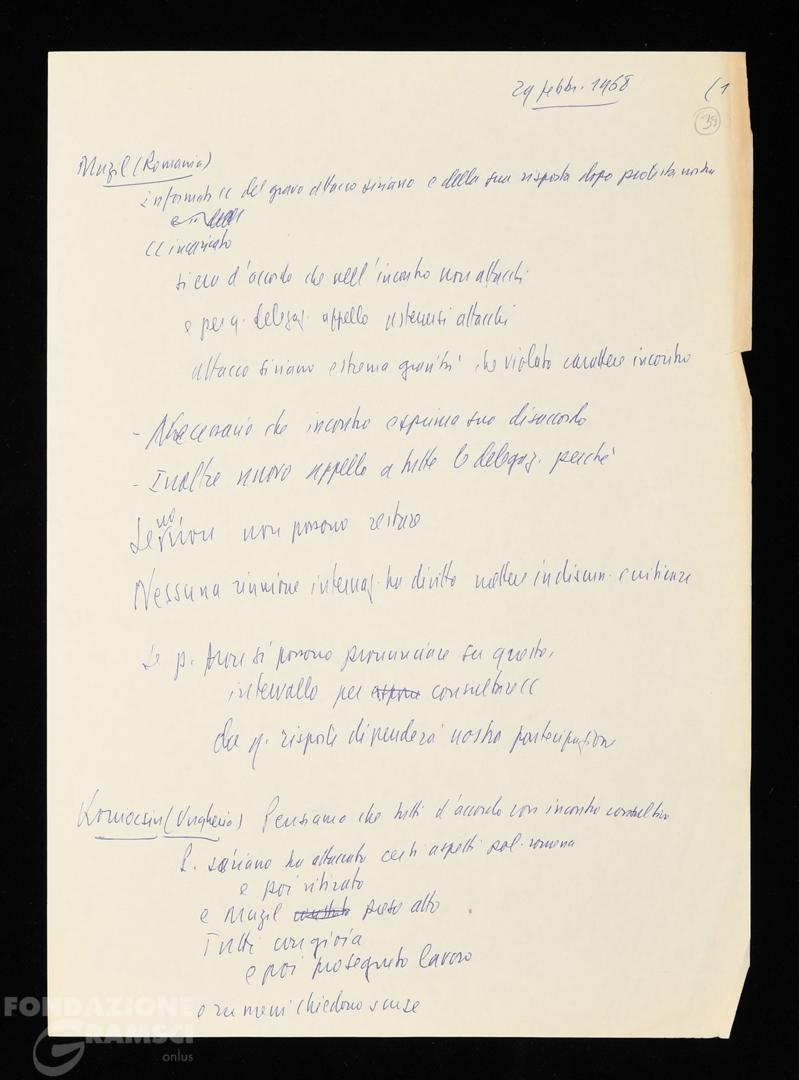 29 febbr. 1968 (1
39
Muzil (Romania)
informati CC del grave attacco siriano e della sua risposta dopo protesta nostra
CC incaricato
si era d'accordo che nell'incontro non attacchi
e per q. delegaz. appello astenersi attacchi
attacco siriano estrema gravità che violato carattere incontro
- Necessario che incontro esprima suo disaccordo
- Inoltre nuovo appello a tutte le delegaz. perché
Se no, non possono restare
Nessuna riunione internaz. ha diritto mettere in discuss.
Se p. si possono pronunciare su questo,
intervallo per consultare CC
da q. risposte dipenderà nostra partecipazione
Komocsin (Ungheria) Pensiamo che tutti d'accordo con incontro consultivo
P. siriano ha attaccato certi aspetti pol. romena
e poi ritirato
e Muzil preso atto
Tutti con gioia
e poi proseguito lavoro
e rumeni chiedono scuse
FONDAZIONE
GRAMSCI
onlus